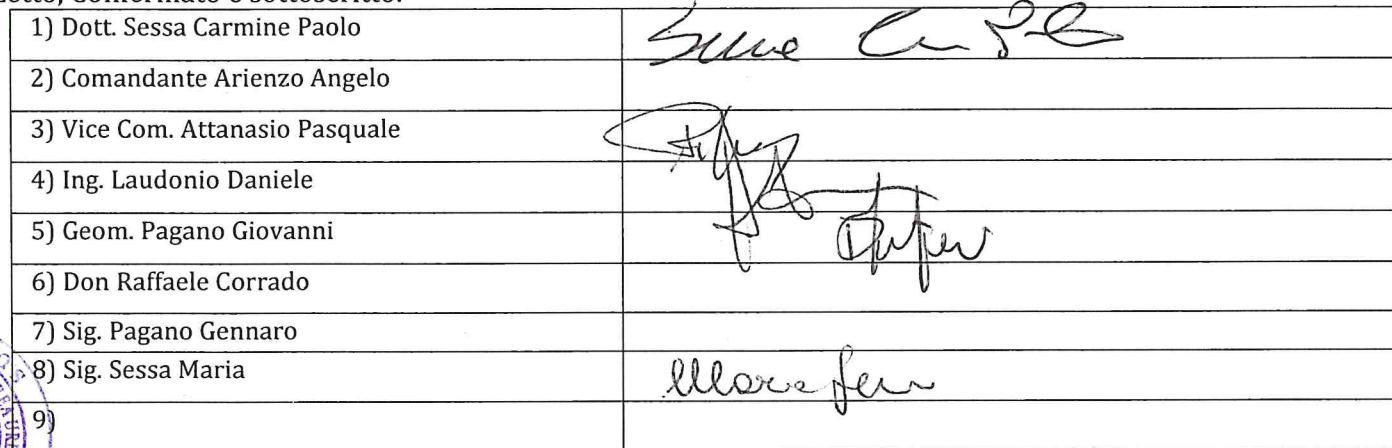 Letto, Confermato e sottoscritto.
1) Dott. Sessa Carmine Paolo
2) Comandante Arienzo Angelo
3) Vice Com. Attanasio Pasquale
4) Ing. Laudonio Daniele
5) Geom. Pagano Giovanni
6) Don Raffaele Corrado
7) Sig. Pagano Gennaro
8) Sig. Sessa Maria
9)